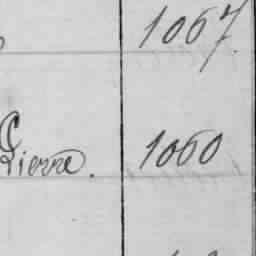 1067.
Pierre. 1060